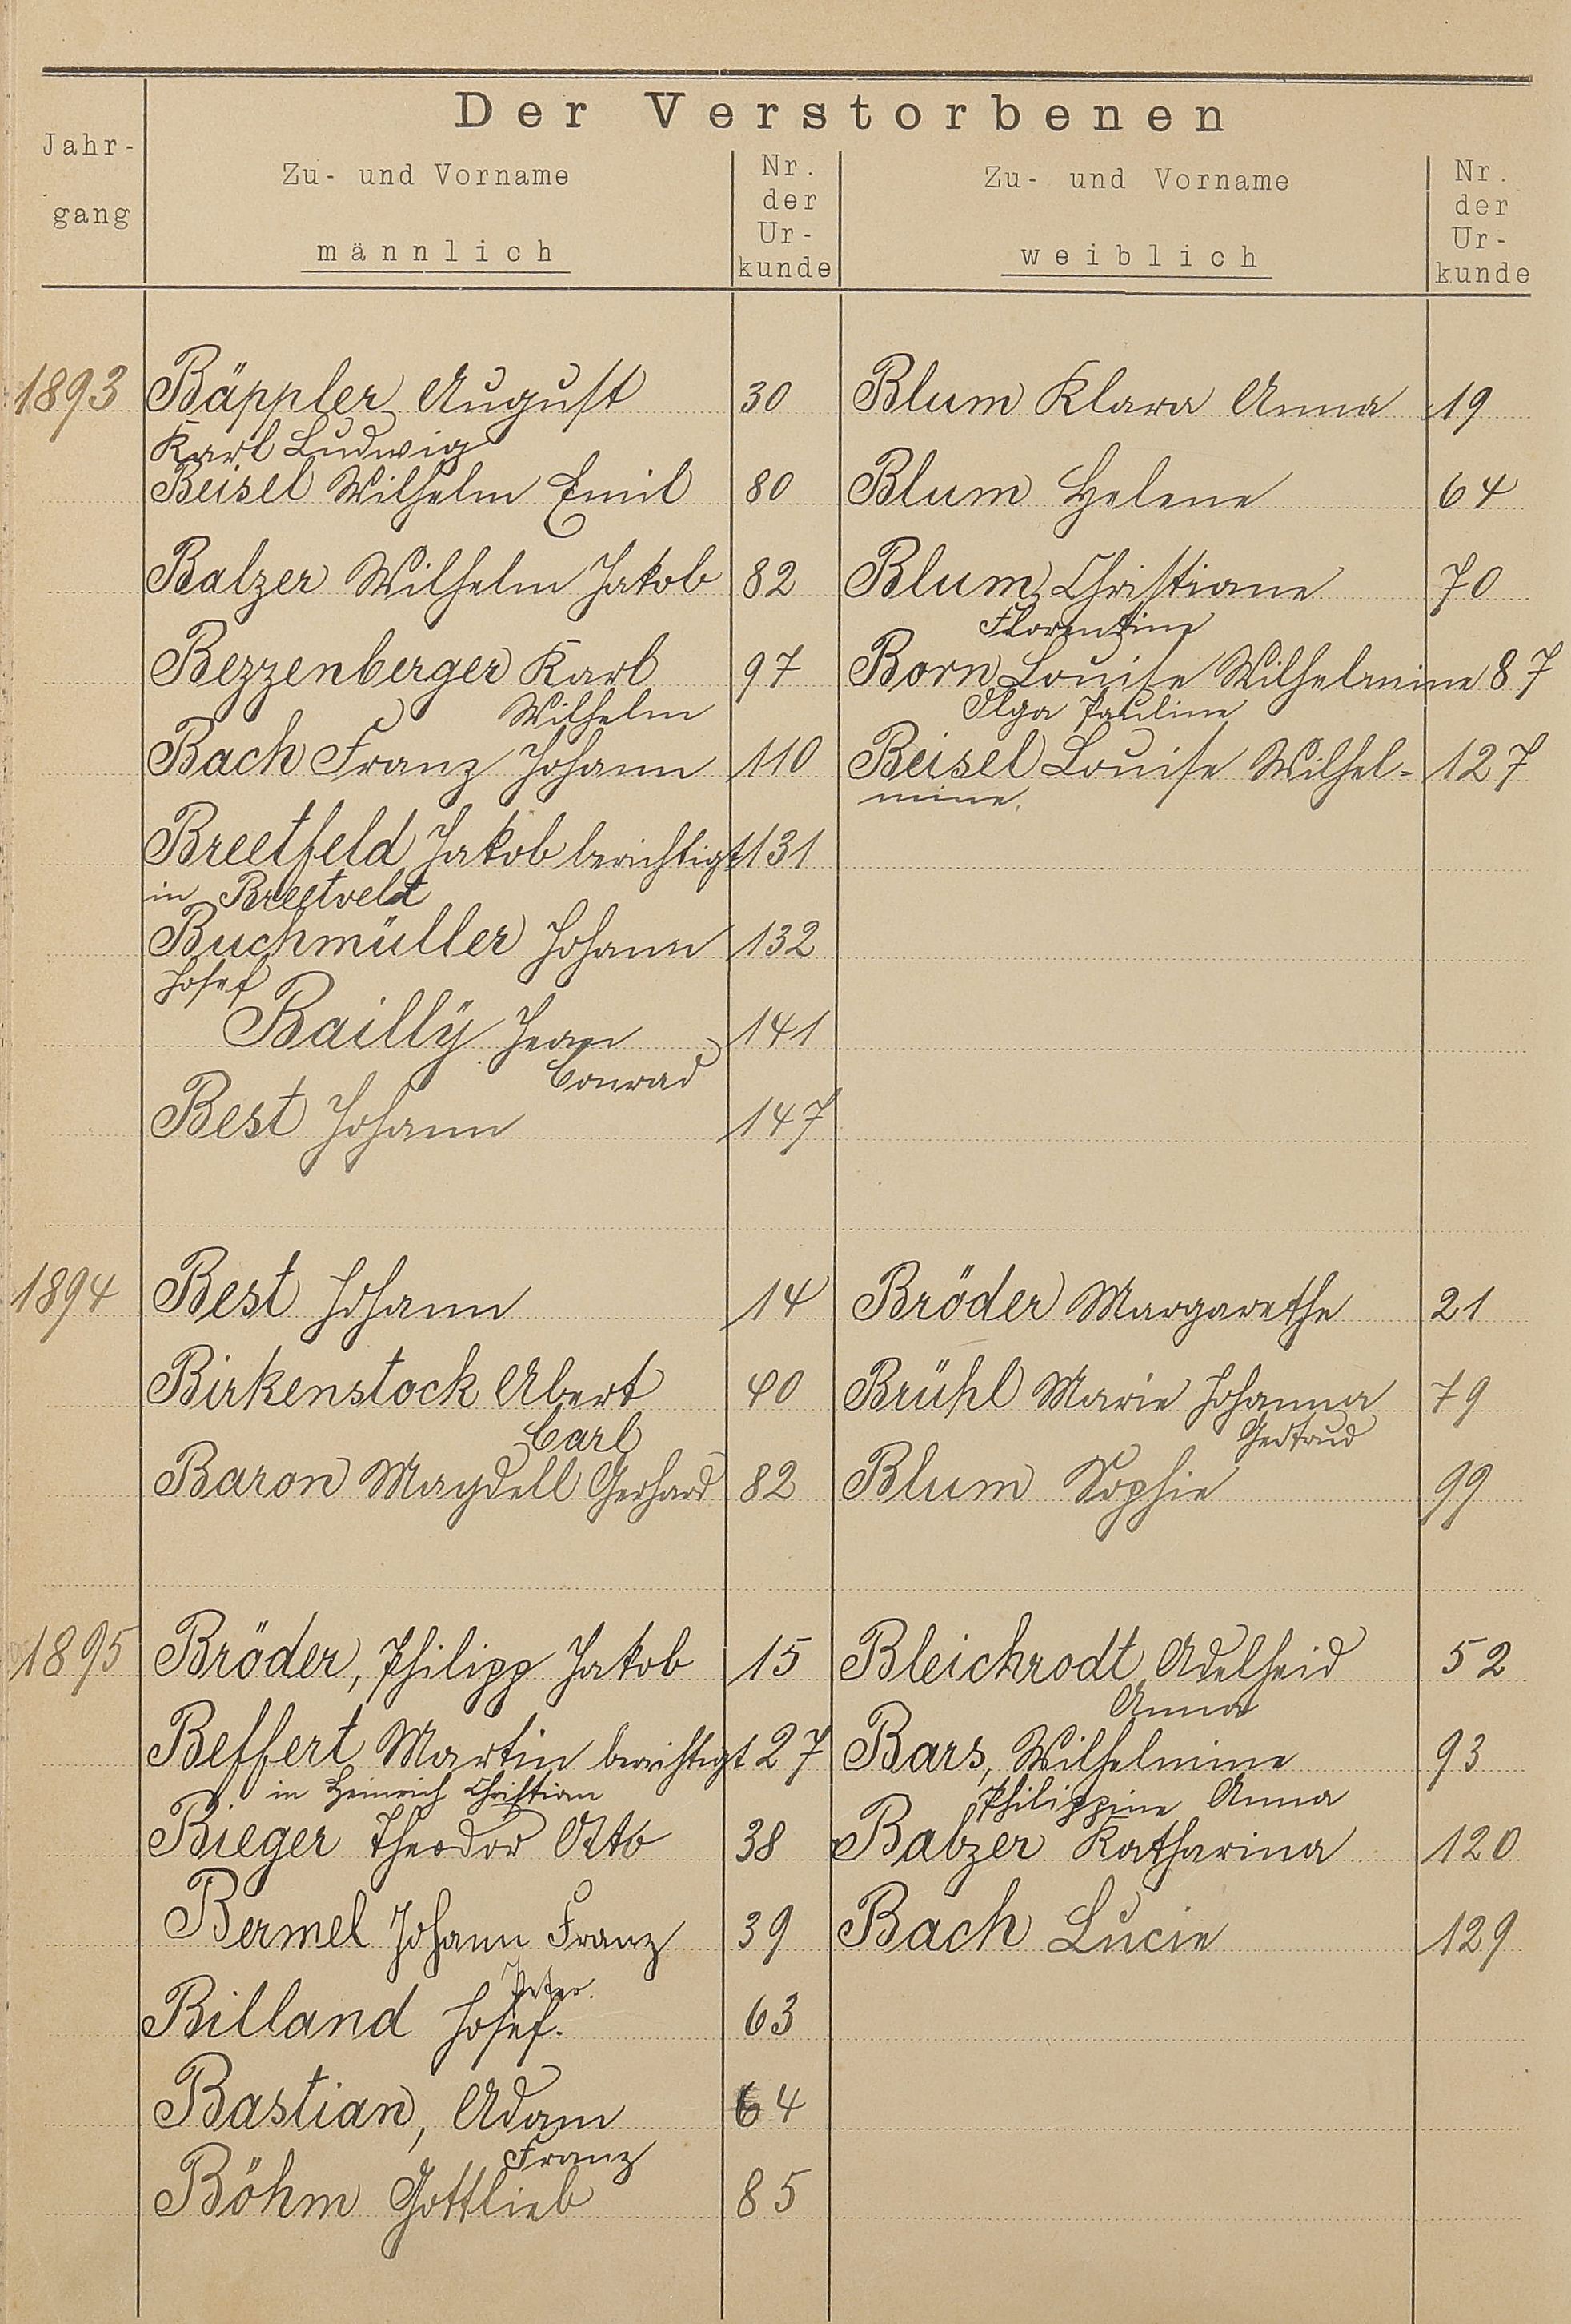 Der Verstorbenen
Jahr-
gang
Zu- und Vorname
männlich
Nr.
der
Ur-
kunde
Zu- und Vorname
weiblich
Nr.
der
Ur-
kunde
1893 Bäppler August 30 Blum Klara Anna 19
Karl Ludwig
Beisel Wilhelm Emil 80 Blum Helene 64
Balzer Wilhelm Jakob 82 Blum, Christiane 70
Florentine
Bezzenberger Karl 97 Born Louise Wilhelmine 87
Wilhelm Olga Pauline
Bach Franz Johann 110 Beisel Louise Wilhel- 127
mine.
Breetfeld Jakob berichtigt 131
in Breetvelt
Buchmüller Johann 132
Josef
Bailly Jean 141
Conrad
Best Johann 147
1894 Best Johann 14 Bröder Margarethe 21
Birkenstock Albert 40 Brühl Marie Johanna 79
Carl Gertrud
Baron Maydell Gerhard 82 Blum Sophie 99
1895 Bröder, Philipp Jakob 15 Bleichrodt Adelheid 52
Anna
Beffert Martin berichtigt 27 Bars, Wilhelmine 93
in Heinrich Christian Philippine Anna
Bieger Theodor Otto 38 Balzer Katharina 120
Bermel Johann Franz 39 Bach Lucie 129
Peter.
Billand Josef. 63
Bastian, Adam 64
Franz
Böhm Gottlieb 85